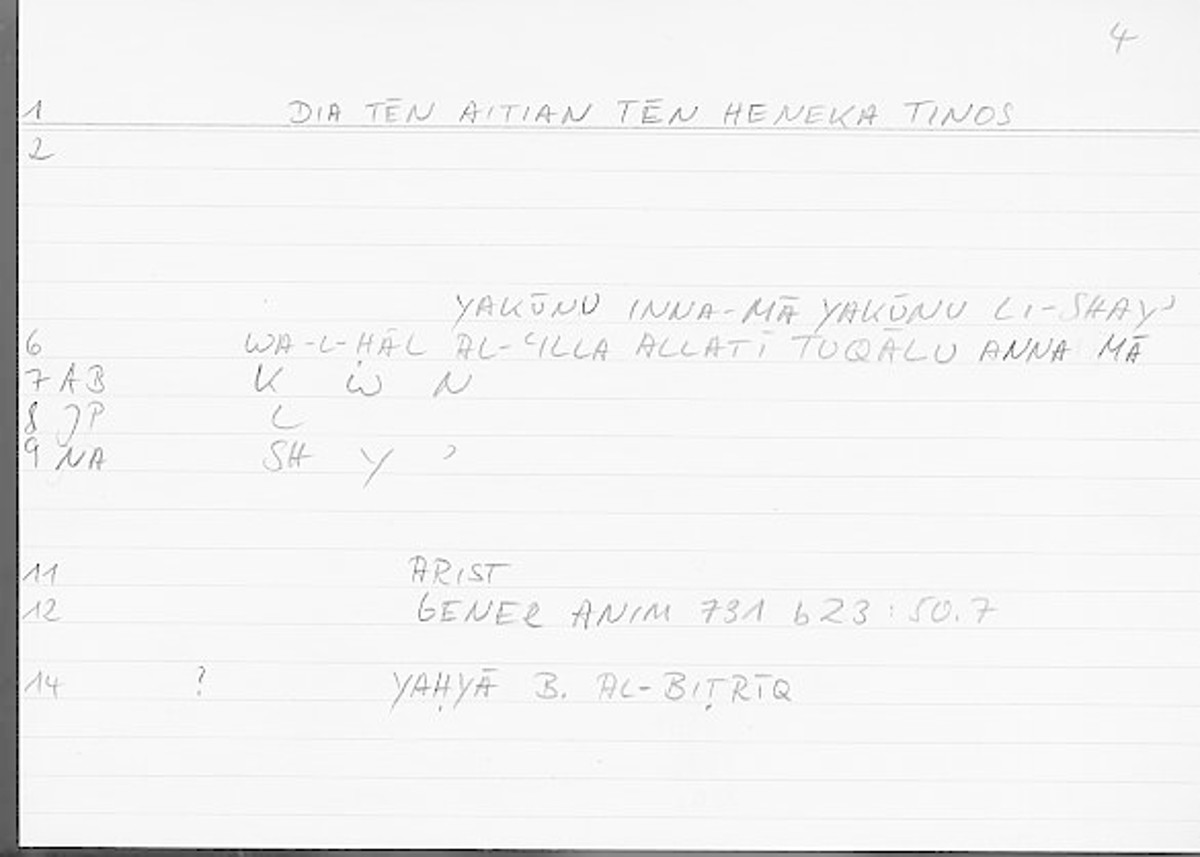 4
1 DIA TĒN AITIAN TĒN HENEKA TINOS
2
YAKŪNU INNA-MĀ YAKŪNU LI-SHAYʾ
6 WA-L-ḤĀL AL-ʿILLA ALLATĪ TUQĀLU ANNA MĀ
7 AB K W N
8 JP L
9 NA SH Y ʾ
11 ARIST
12 GENER ANIM 731 b23 : 50.7
14 ? YAḤYĀ B. AL-BIṬRĪQ